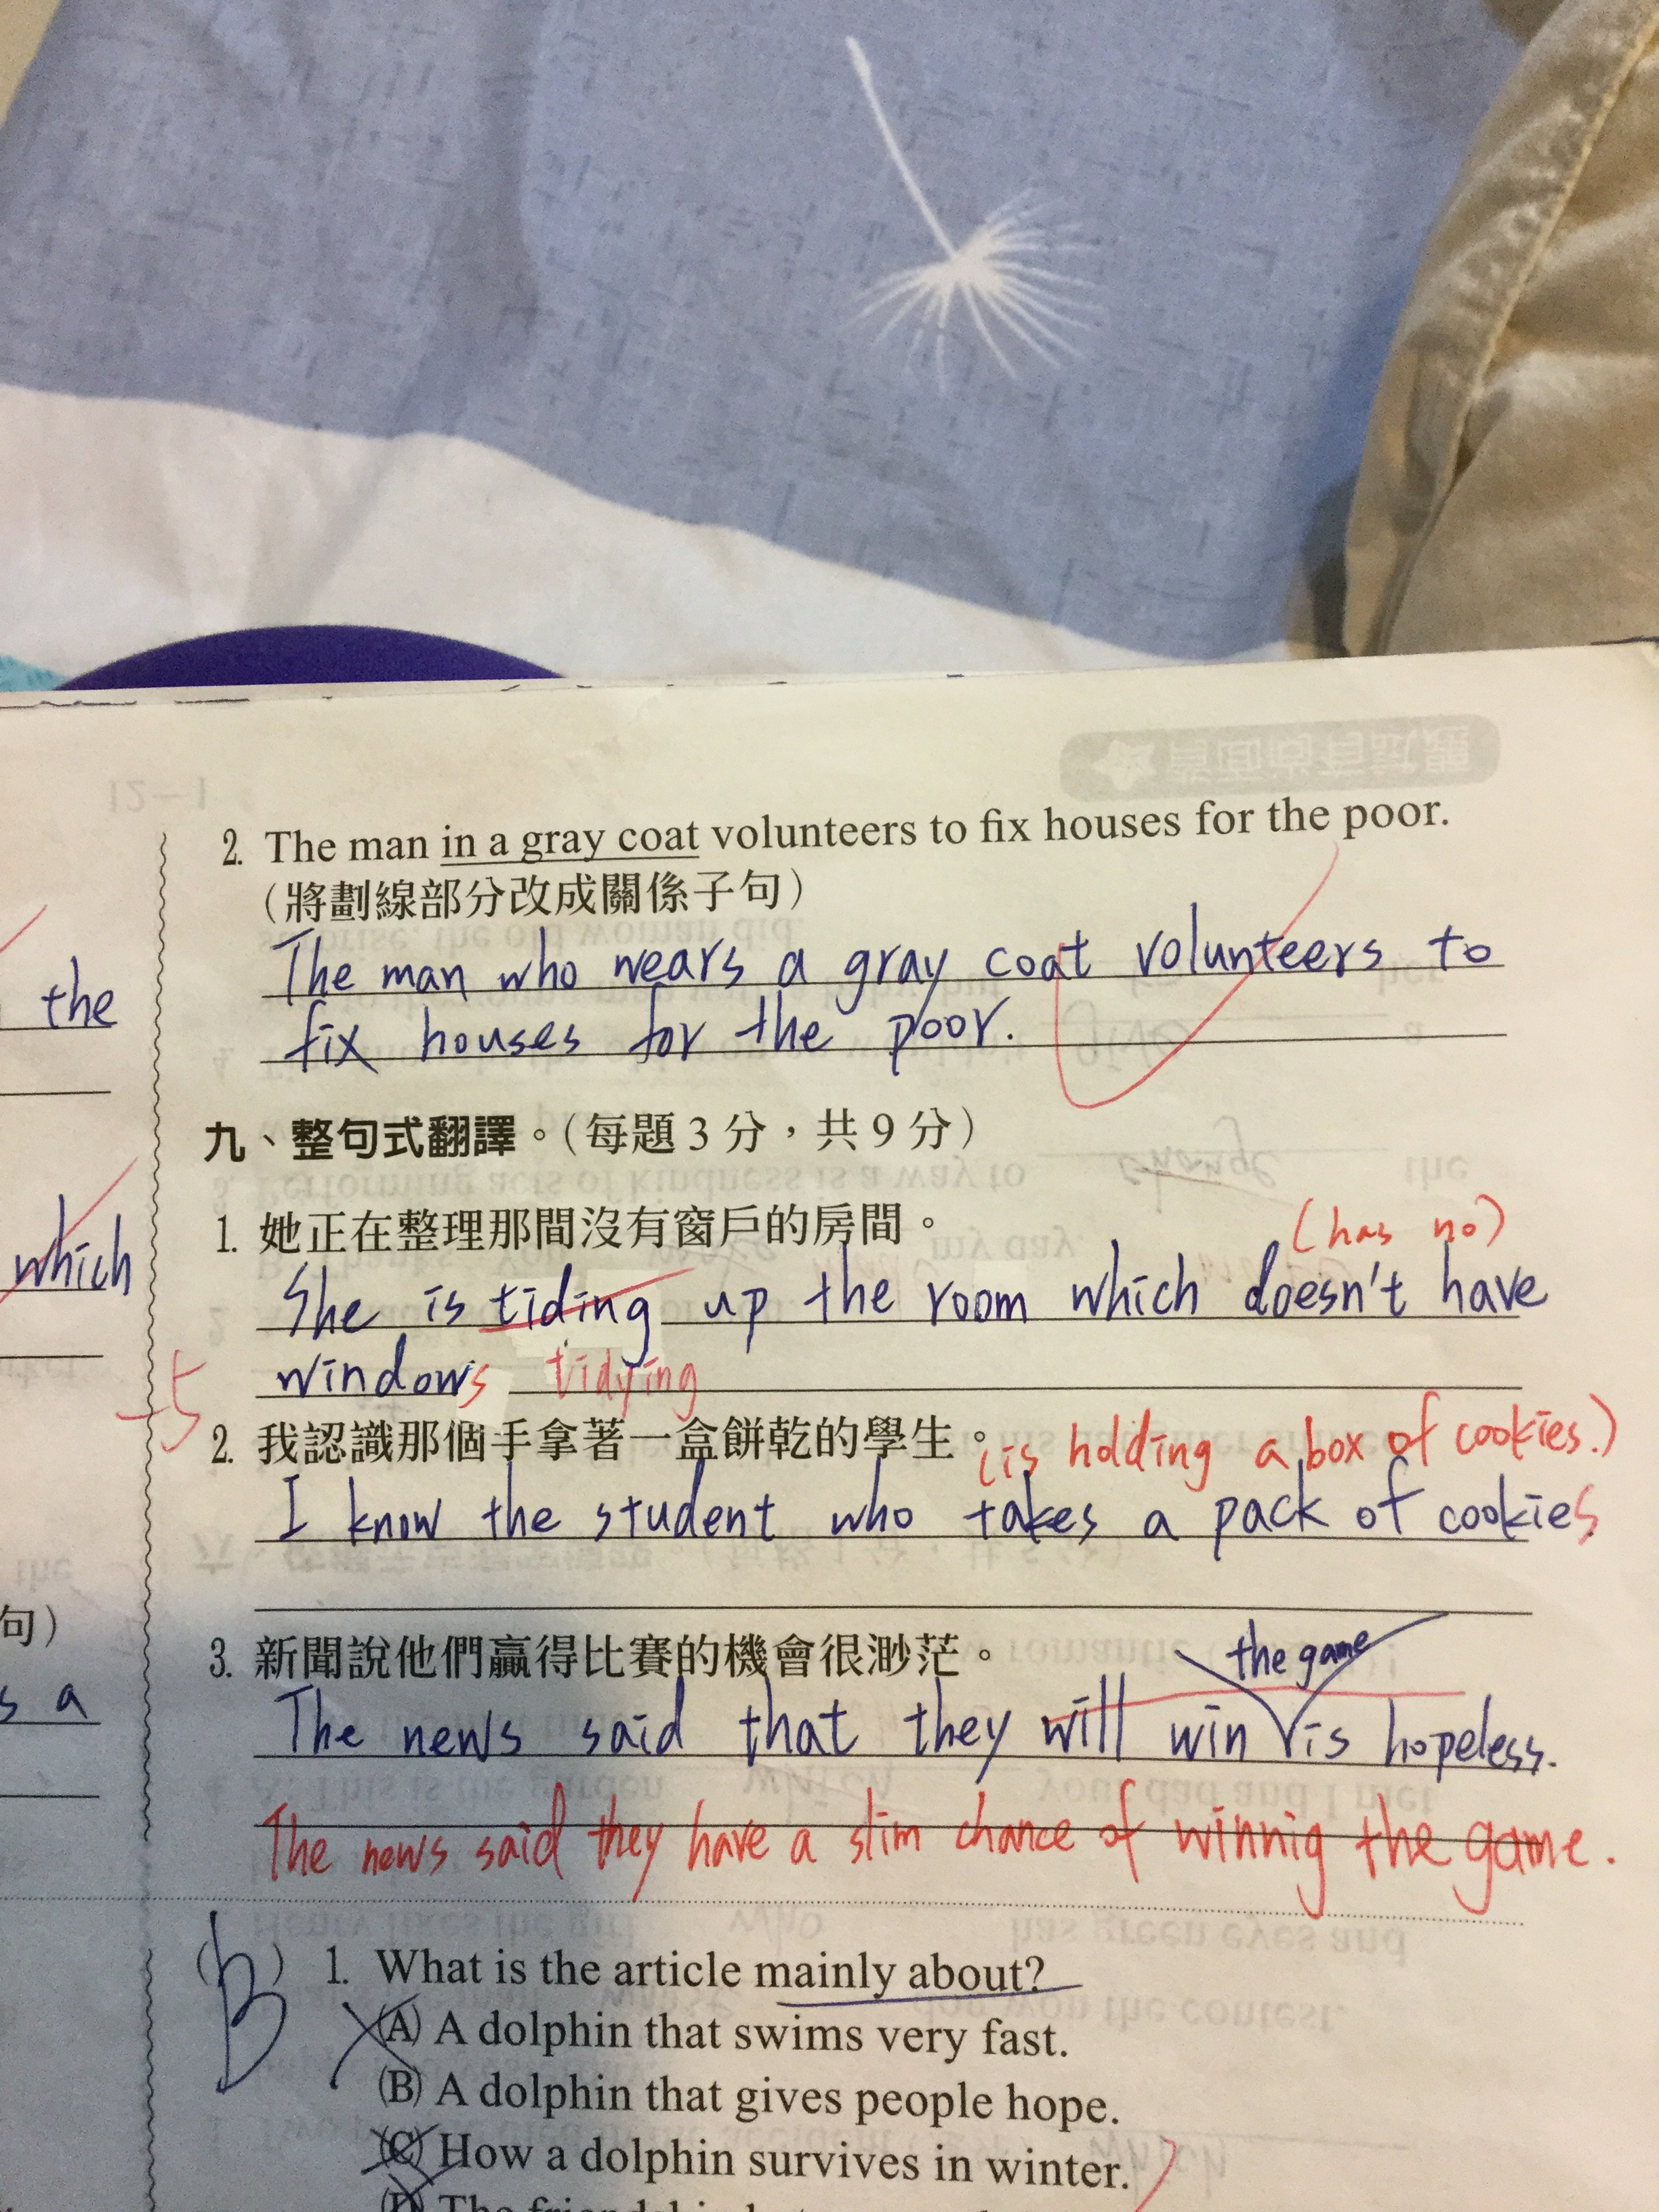 2. The man in a gray coat volunteers to fix houses for the poor.
(將劃線部分改成關係子句)
The man who wears a gray coat volunteers to
fix houses for the poor.
the
九、整句式翻譯。(每題3分，共9分)
1. 她正在整理那間沒有窗戶的房間。
(has no)
which
She is tiding up the room which doesn't have
windows tidying
-5
2. 我認識那個手拿著一盒餅乾的學生。
(is holding a box of cookies.)
I know the student who takes a pack of cookies
句)
3. 新聞說他們贏得比賽的機會很渺茫。
the game
s a
The news said that they will win is hopeless.
The news said they have a slim chance of winnig the game.
(B) 1. What is the article mainly about?
(A) A dolphin that swims very fast.
(B) A dolphin that gives people hope.
(C) How a dolphin survives in winter.